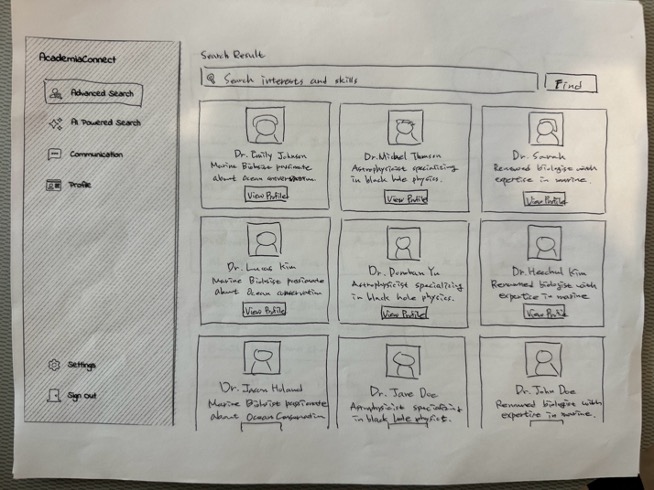 AcademiaConnect
Advanced Search
AI Powered Search
Communication
Profile
Settings
Sign Out
Search Result
Search interests and skills
Find
Dr. Emily Johnson
Marine Biologist passionate
about Ocean conservation
View Profile
Dr. Michel Thomson
Astrophysicist specializing
in black hole physics.
View Profile
Dr. Sarah
Renowned biologist with
expertise in marine.
View Profile
Dr. Lucas Kim
Marine Biologist passionate
about Ocean conservation
View Profile
Dr. Yu
Astrophysicist specializing
in black hole physics.
View Profile
Dr. Heechul Kim
Renowned biologist with
expertise in marine
View Profile
Dr. Jason
Marine Biologist passionate
about Ocean Conservation
Dr. Jane Doe
Astrophysicist specializing
in black hole physics.
Dr. John Doe
Renowned biologist with
expertise in marine.